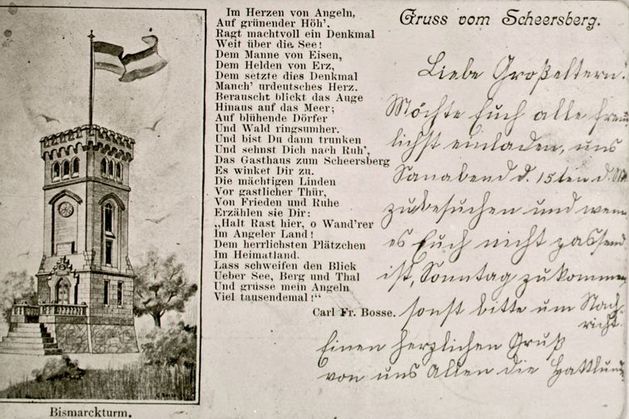 Im Herzen von Angeln,
Auf grünender Höh',
Ragt machtvoll ein Denkmal
Weit über die See!
Dem Manne von Eisen,
Dem Helden von Erz,
Dem setzte dies Denkmal
Manch' urdeutsches Herz.
Berauscht blickt das Auge
Hinaus auf das Meer;
Auf blühende Dörfer
Und Wald ringsumher.
Und bist Du dann trunken
Und sehnst Dich nach Ruh',
Das Gasthaus zum Scheersberg
Es winket Dir zu.
Die mächtigen Linden
Vor gastlicher Thür,
Von Frieden und Ruhe
Erzählen sie Dir:
„Halt Rast hier, o Wand'rer
Im Angeler Land!
Dem herrlichsten Plätzchen
Im Heimatland.
Lass schweifen den Blick
Ueber See, Berg und Thal
Und grüsse mein Angeln
Viel tausendemal!“
Carl Fr. Bosse.
Gruss vom Scheersberg.
Liebe Großeltern.
Möchte Euch alle freu
lichst einladen, uns
Sonabend d. 15ten d.
zu besuchen und wenn
es Euch nicht passend
ist, Sonntag zu kommen
sonst bitte um Nach-
richt.
Einen herzlichen Gruß
von uns Allen die
Bismarckturm.